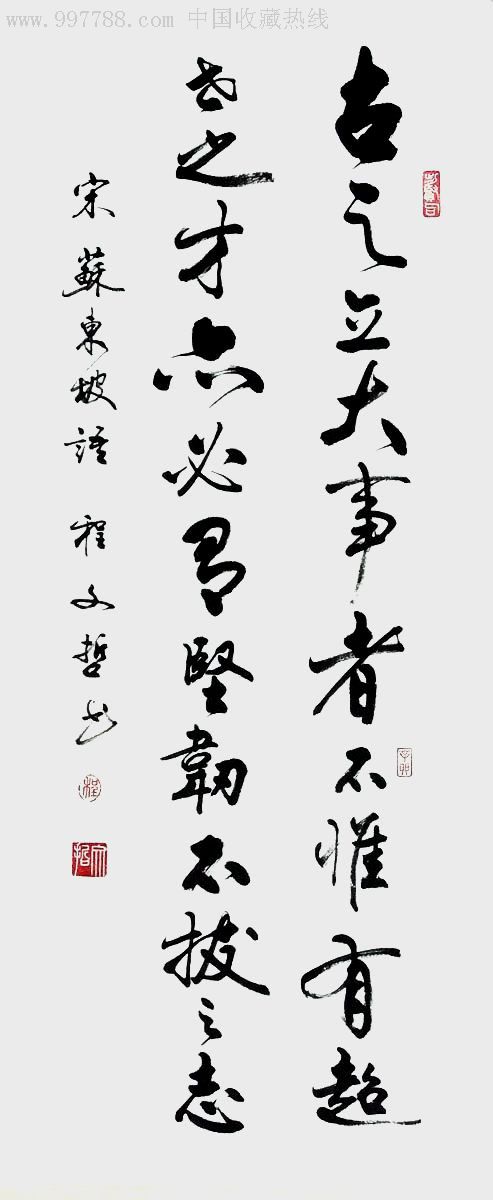 www.997788.com 中国收藏热线
古之立大事者不惟有超
世之才亦必有堅韌不拔之志
宋蘇東坡語 程文哲书
辛卯
程
文哲